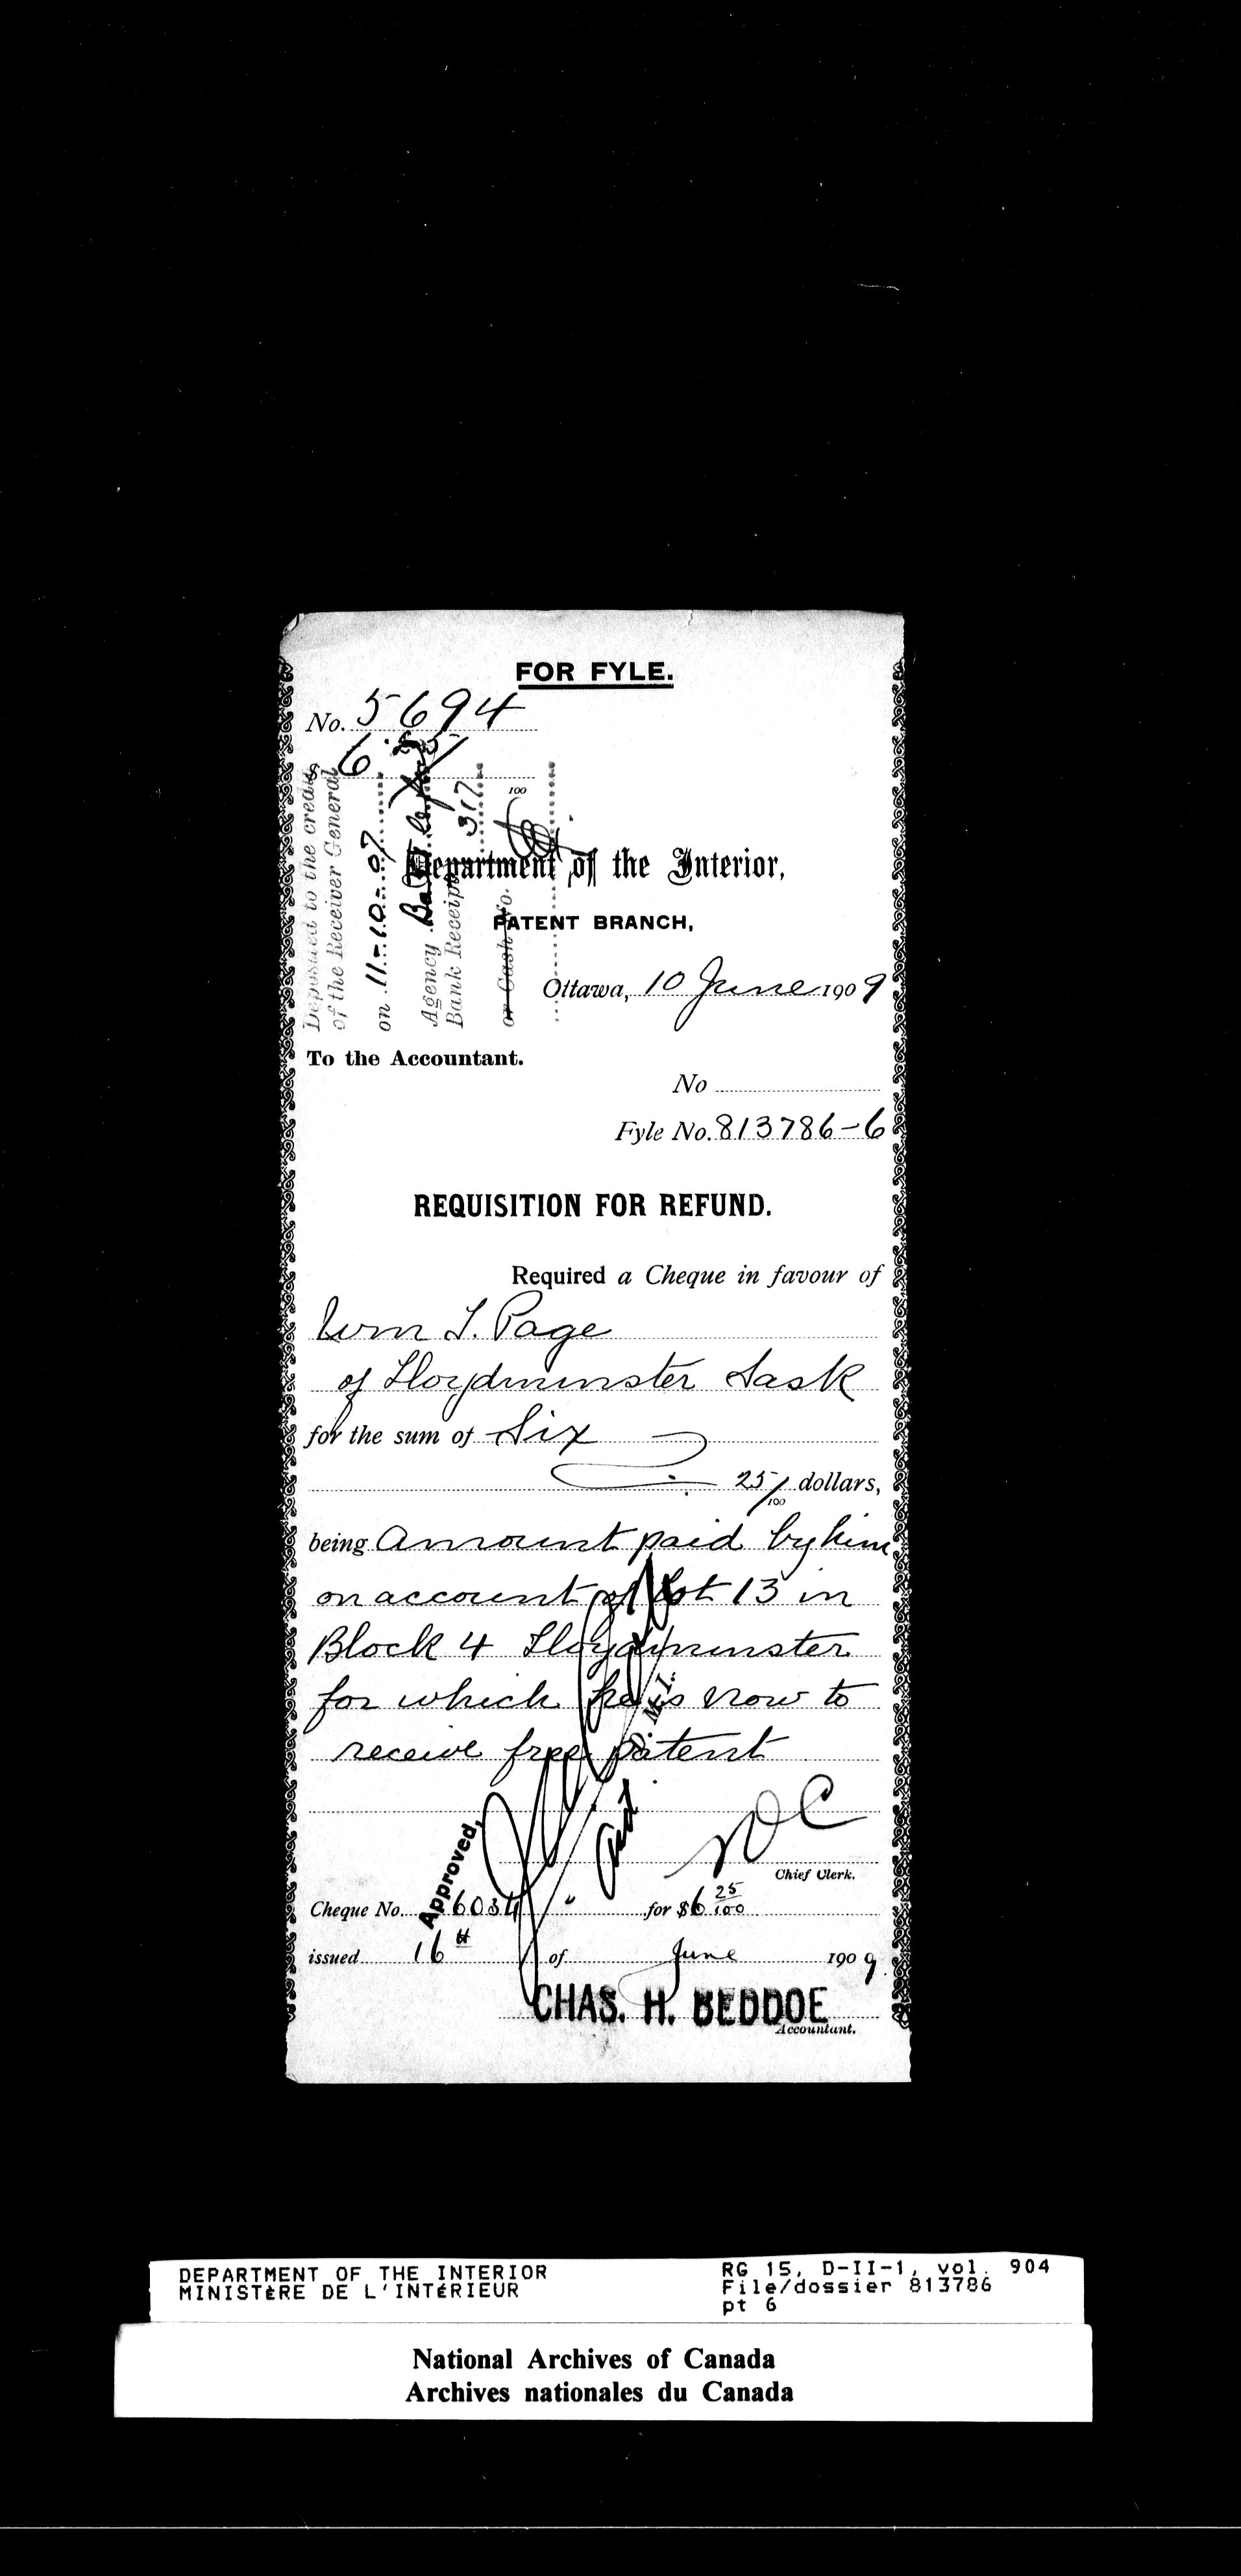 FOR FYLE.
No. 5694
Deposited to the credit
of the Receiver General
on 11-10-07
Agency Battleford
Bank Receipt 317
or Cash No.
$6.25
100
Department of the Interior,
PATENT BRANCH,
Ottawa, 10 June 1909
To the Accountant.
No
Fyle No. 813786-6
REQUISITION FOR REFUND.
Required a Cheque in favour of
Wm T. Page
of Lloydminster Sask
for the sum of Six
25/100 dollars,
being Amount paid by him
on account of Lot 13 in
Block 4 Lloydminster
for which he is now to
receive free patent
Approved,
M.I.
NOC
Chief Clerk.
Cheque No. 6034 for $6 25/100
issued 16th of June 1909
CHAS. H. BEDDOE
Accountant.
DEPARTMENT OF THE INTERIOR
MINISTÈRE DE L'INTÉRIEUR
RG 15, D-II-1, vol. 904
File/dossier 813786
pt 6
National Archives of Canada
Archives nationales du Canada